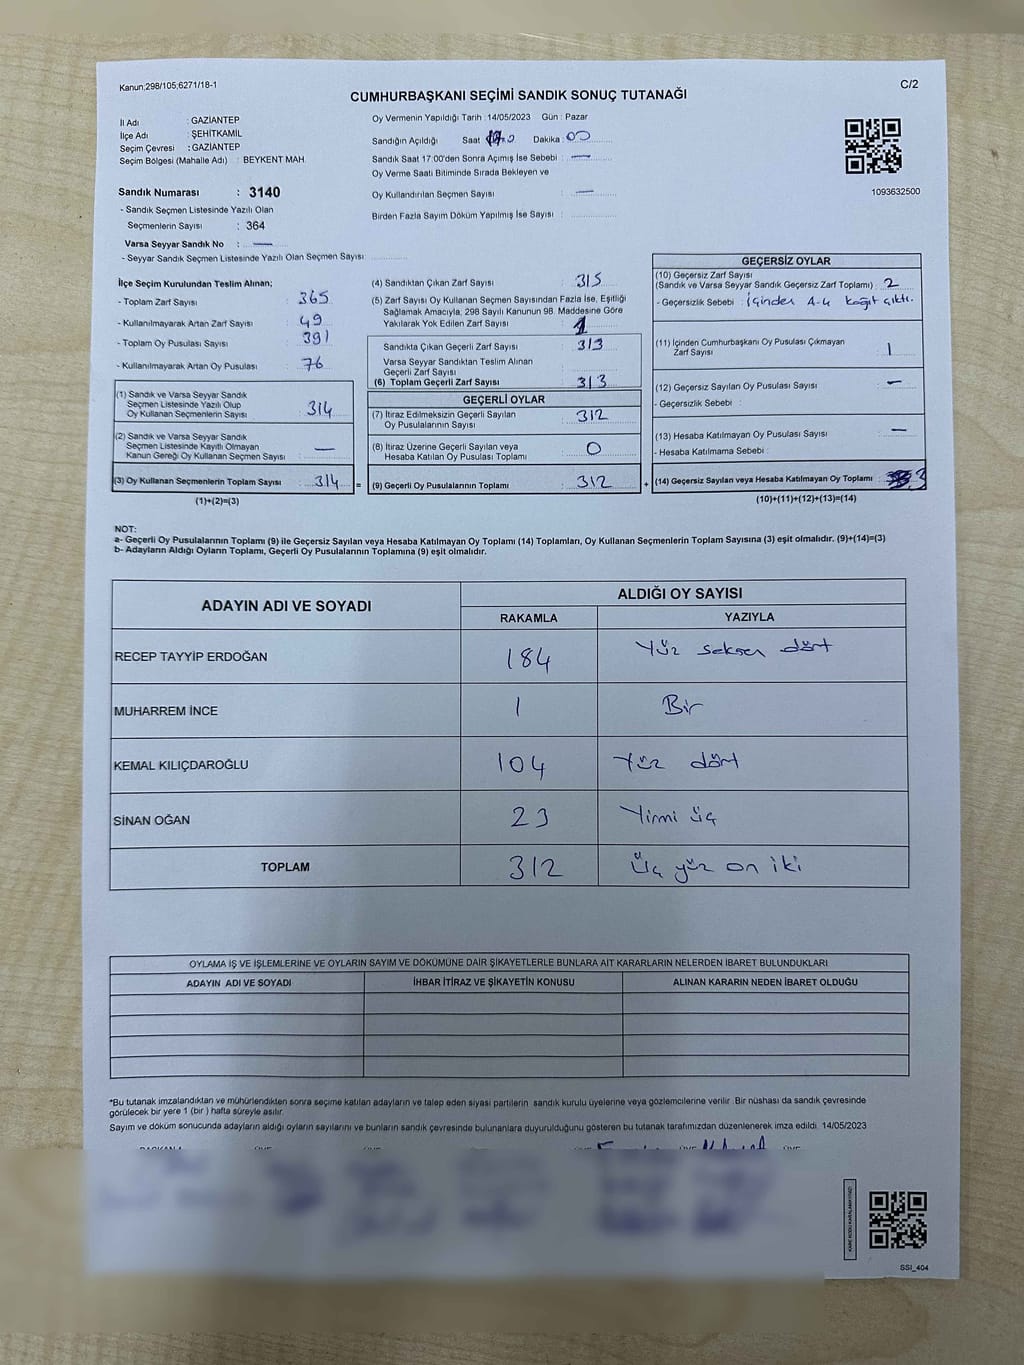 Kanun;298/105;6271/18-1
C/2
CUMHURBAŞKANI SEÇİMİ SANDIK SONUÇ TUTANAĞI
İl Adı : GAZİANTEP
İlçe Adı : ŞEHİTKAMİL
Seçim Çevresi : GAZİANTEP
Seçim Bölgesi (Mahalle Adı) : BEYKENT MAH.
Sandık Numarası : 3140
- Sandık Seçmen Listesinde Yazılı Olan
Seçmenlerin Sayısı : 364
Varsa Seyyar Sandık No : —
- Seyyar Sandık Seçmen Listesinde Yazılı Olan Seçmen Sayısı :
Oy Vermenin Yapıldığı Tarih : 14/05/2023 Gün : Pazar
Sandığın Açıldığı Saat Dakika : 00
Sandık Saat 17:00'den Sonra Açımış İse Sebebi : —
Oy Verme Saati Bitiminde Sırada Bekleyen ve
Oy Kullandırılan Seçmen Sayısı : —
Birden Fazla Sayım Döküm Yapılmış İse Sayısı :
1093632500
İlçe Seçim Kurulundan Teslim Alınan;
- Toplam Zarf Sayısı : 365
- Kullanılmayarak Artan Zarf Sayısı : 49
- Toplam Oy Pusulası Sayısı : 391
- Kullanılmayarak Artan Oy Pusulası : 76
(1) Sandık ve Varsa Seyyar Sandık
Seçmen Listesinde Yazılı Olup
Oy Kullanan Seçmenlerin Sayısı : 314
(2) Sandık ve Varsa Seyyar Sandık
Seçmen Listesinde Kayıtlı Olmayan
Kanun Gereği Oy Kullanan Seçmen Sayısı : —
(3) Oy Kullanan Seçmenlerin Toplam Sayısı : 314 =
(1)+(2)=(3)
(4) Sandıktan Çıkan Zarf Sayısı : 315
(5) Zarf Sayısı Oy Kullanan Seçmen Sayısından Fazla İse, Eşitliği
Sağlamak Amacıyla, 298 Sayılı Kanunun 98. Maddesine Göre
Yakılarak Yok Edilen Zarf Sayısı : 1
Sandıkta Çıkan Geçerli Zarf Sayısı : 313
Varsa Seyyar Sandıktan Teslim Alınan
Geçerli Zarf Sayısı :
(6) Toplam Geçerli Zarf Sayısı : 313
GEÇERLİ OYLAR
(7) İtiraz Edilmeksizin Geçerli Sayılan
Oy Pusulalarının Sayısı : 312
(8) İtiraz Üzerine Geçerli Sayılan veya
Hesaba Katılan Oy Pusulası Toplamı : 0
(9) Geçerli Oy Pusulalarının Toplamı : 312 +
GEÇERSİZ OYLAR
(10) Geçersiz Zarf Sayısı
(Sandık ve Varsa Seyyar Sandık Geçersiz Zarf Toplamı) : 2
- Geçersizlik Sebebi : İçinden A-4 kağıt çıktı.
(11) İçinden Cumhurbaşkanı Oy Pusulası Çıkmayan
Zarf Sayısı : 1
(12) Geçersiz Sayılan Oy Pusulası Sayısı : —
- Geçersizlik Sebebi :
(13) Hesaba Katılmayan Oy Pusulası Sayısı : —
- Hesaba Katılmama Sebebi :
(14) Geçersiz Sayılan veya Hesaba Katılmayan Oy Toplamı : 3
(10)+(11)+(12)+(13)=(14)
NOT:
a- Geçerli Oy Pusulalarının Toplamı (9) ile Geçersiz Sayılan veya Hesaba Katılmayan Oy Toplamı (14) Toplamları, Oy Kullanan Seçmenlerin Toplam Sayısına (3) eşit olmalıdır. (9)+(14)=(3)
b- Adayların Aldığı Oyların Toplamı, Geçerli Oy Pusulalarının Toplamına (9) eşit olmalıdır.
ADAYIN ADI VE SOYADI
ALDIĞI OY SAYISI
RAKAMLA YAZIYLA
RECEP TAYYİP ERDOĞAN 184 Yüz seksen dört
MUHARREM İNCE 1 Bir
KEMAL KILIÇDAROĞLU 104 Yüz dört
SİNAN OĞAN 23 Yirmi üç
TOPLAM 312 Üç yüz on iki
OYLAMA İŞ VE İŞLEMLERİNE VE OYLARIN SAYIM VE DÖKÜMÜNE DAİR ŞİKAYETLERLE BUNLARA AİT KARARLARIN NELERDEN İBARET BULUNDUKLARI
ADAYIN ADI VE SOYADI İHBAR İTİRAZ VE ŞİKAYETİN KONUSU ALINAN KARARIN NEDEN İBARET OLDUĞU
*Bu tutanak imzalandıktan ve mühürlendikten sonra seçime katılan adayların ve talep eden siyasi partilerin sandık kurulu üyelerine veya gözlemcilerine verilir .Bir nüshası da sandık çevresinde
görülecek bir yere 1 (bir ) hafta süreyle asılır.
Sayım ve döküm sonucunda adayların aldığı oyların sayılarını ve bunların sandık çevresinde bulunanlara duyurulduğunu gösteren bu tutanak tarafımızdan düzenlenerek imza edildi. 14/05/2023
KARE KODU KARALAMAYINIZ!
SSİ_404